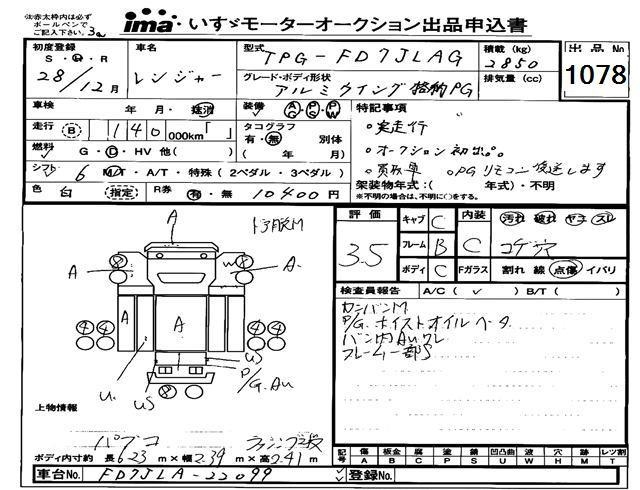 (注)赤太枠内は必ず
ボールペンで
ご記入下さい。
ima いすゞモーターオークション出品申込書
初度登録
S・H・R
28/12月
車名
レンジャー
型式
TPG-FD7JLAG
積載(kg)
2850
出品No
1078
グレード・ボディ形状
アルミウイング 格納PG
排気量(cc)
車検
年・月・抹消
装備
AC・PS・PW
特記事項
走行
B
140
000km「」
タコグラフ
有・無
別体
(年月)
。実走行
。オークション初出品。
。買取車 。PGリモコン後送します
燃料
G・D・HV 他()
シフト
6
MT・A/T・特殊(2ペダル・3ペダル)
架装物年式:(年式)・不明
※不明の場合は、不明に○をする。
色
白
指定
R券
有・無
10400円
評価
3.5
キャブ
C
内装
汚れ 破れ ヤニ スレ
フレーム
B
C
コゲ穴
ボディ
C
Fガラス
割れ 線 点傷 イバリ
ドア脱M
A
A
A
A
A
W
④④
④④
U
US
US
P/G.Au
検査員報告
A/C(✓)
B/T()
カンバンM
P/G.ホイストオイルベータ
バン内Auワレ
フレーム一部S
上物情報
パブコ
ボディ内寸約 長623m×幅2.39m×高2.41m
記号
傷 板金 腐 塗 錆 凹凸曲 歪 穴 跡 レツ割
A B C P S U W H M T
車台No.
FD7JLA-22099
登録No.